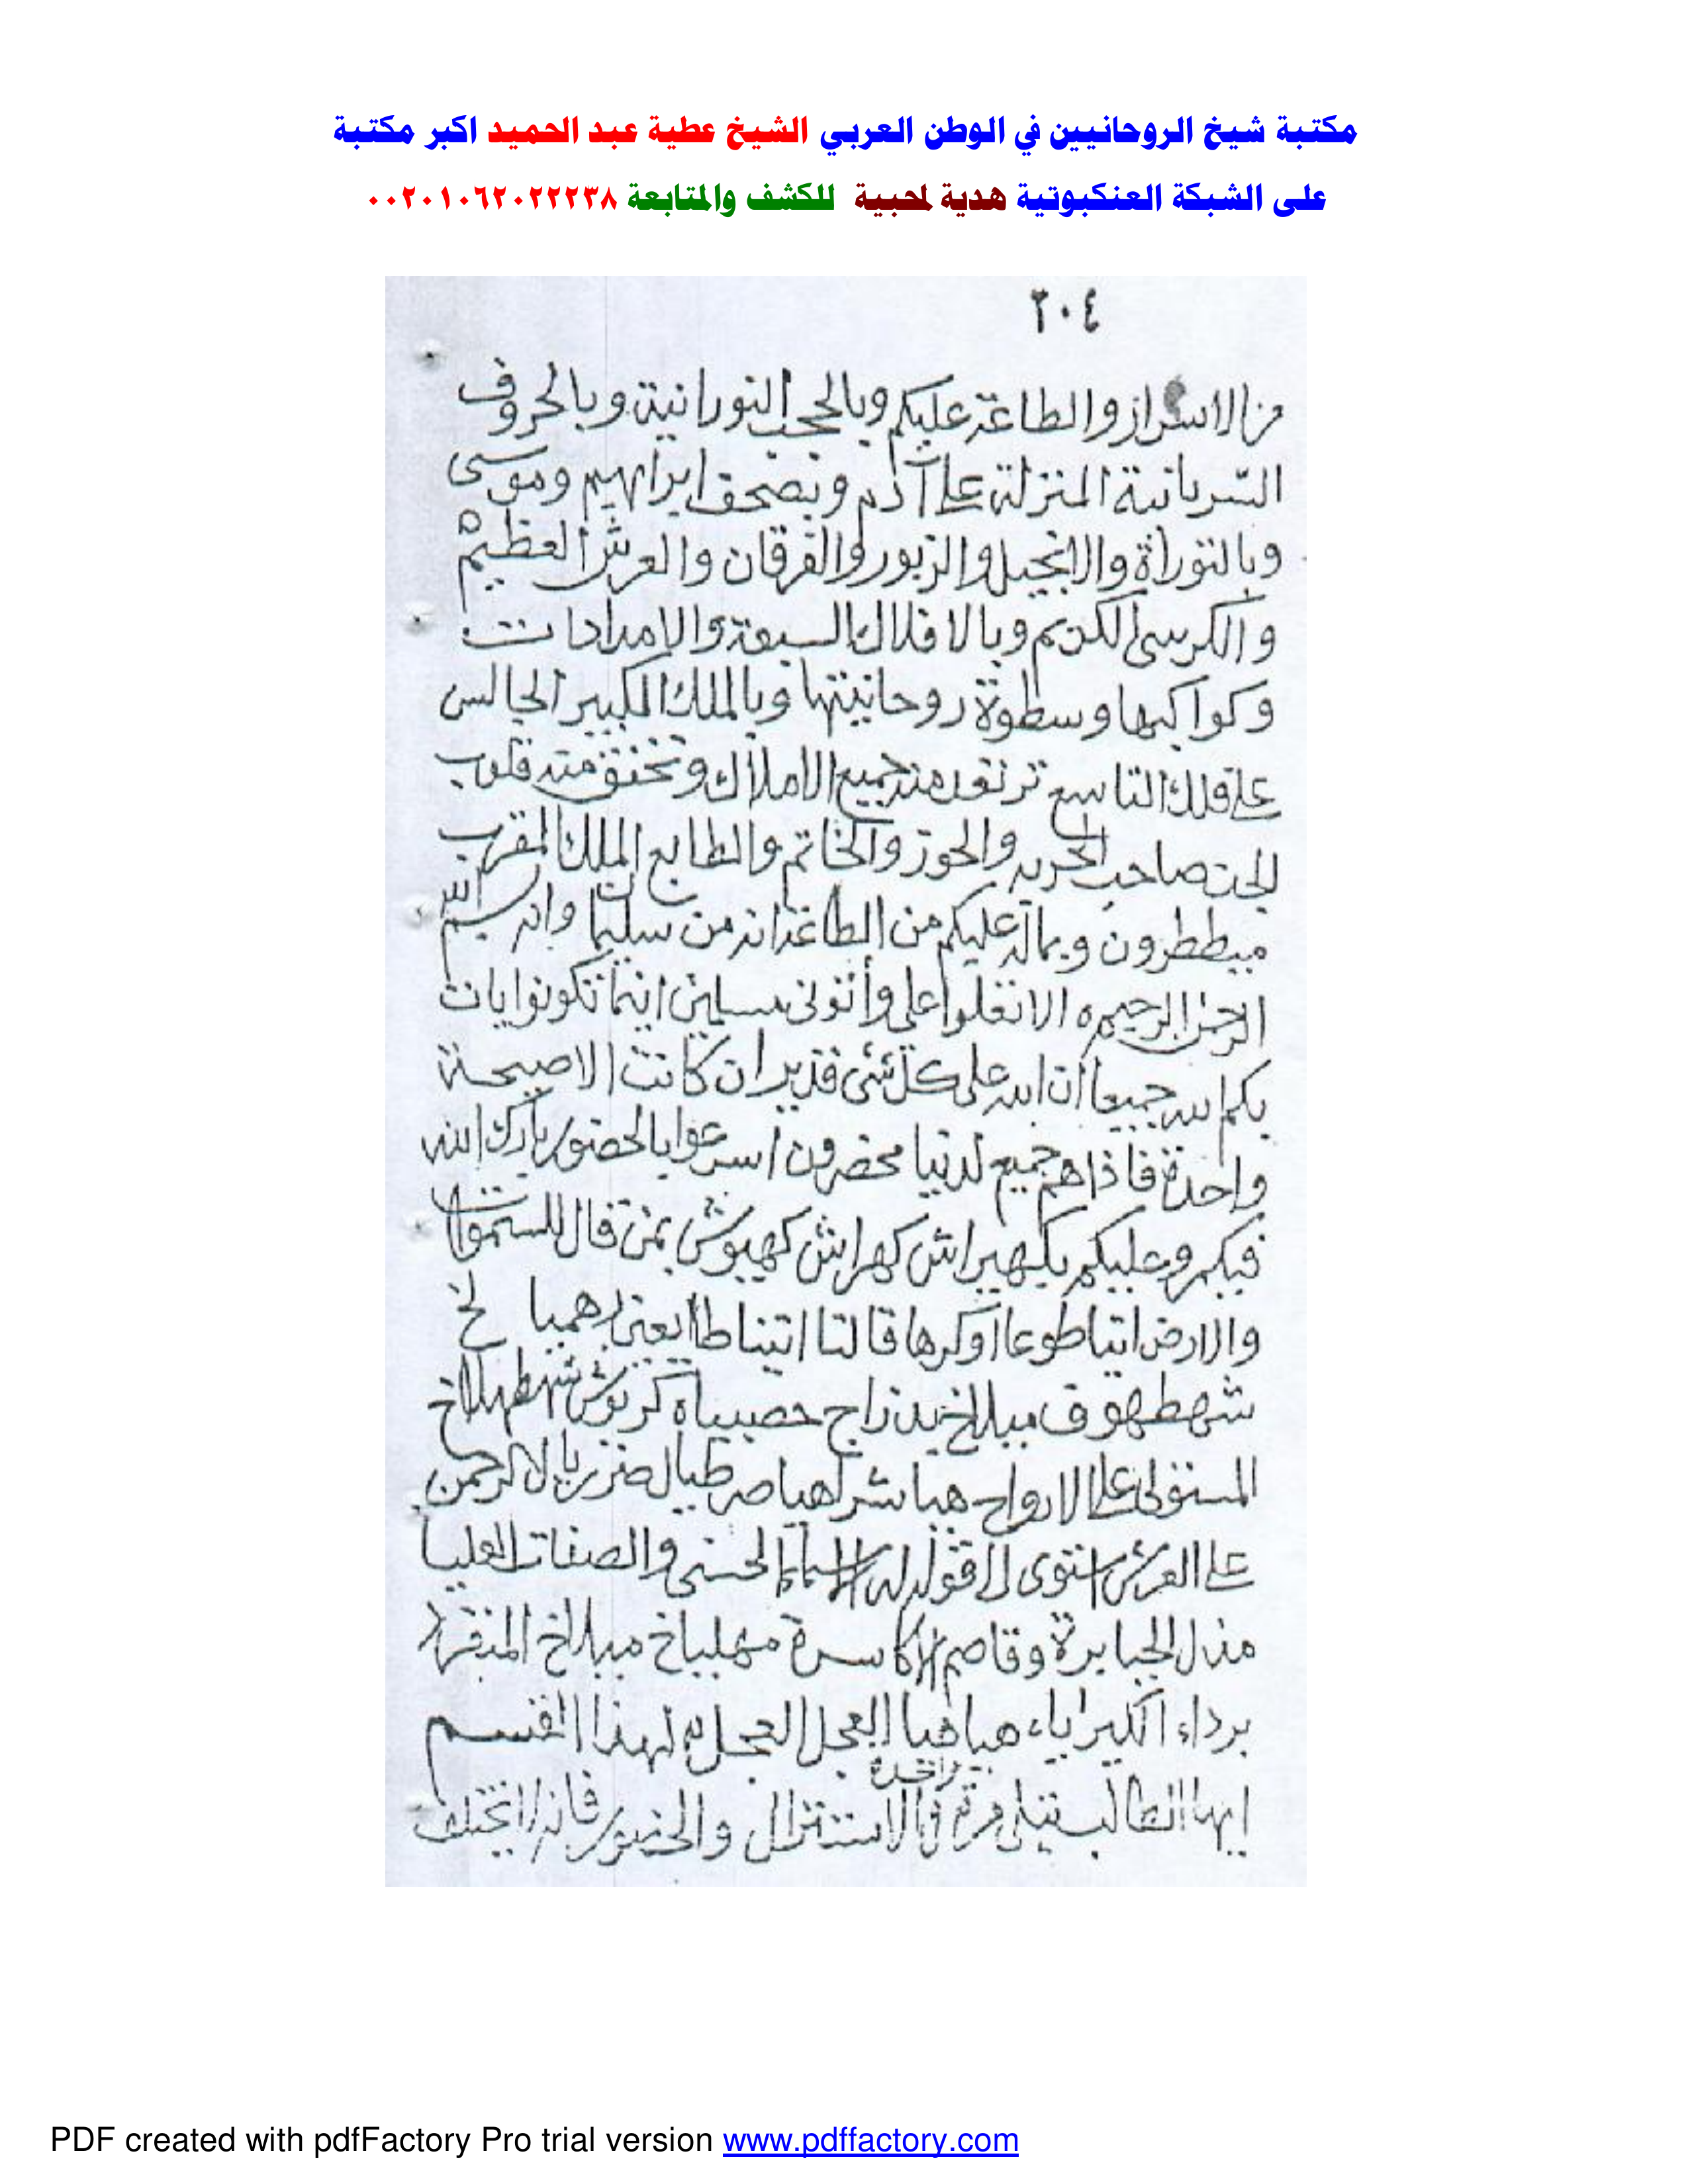 مكتبة شيخ الروحانيين في الوطن العربي الشيخ عطية عبد الحميد اكبر مكتبة
على الشبكة العنكبوتية هدية لمحبية للكشف والمتابعة ٠٠٢٠١٠٦٢٠٢٢٢٣٨
٢٠٤
من الاسرار والطاعة عليكم وبالحجب النورانية وبالحروف
السريانية المنزلة على آدم وبصحف ابراهيم وموسى
وبالتوراة والانجيل والزبور والفرقان والعرش العظيم
والكرسى الكريم وبالافلاك السبعة والامدادات
وكواكبها وسطوة روحانيتها وبالملك الكبير الجالس
على فلك التاسع ترتعد منه جميع الاملاك وتخفق منه قلوب
الجن صاحب الحربه والحوز والخاتم والطابع الملك المقرب
ميططرون وبماله عليكم من الطاعة انه من سليمان وانه بسم الله
الرحمن الرحيم ه الا تعلوا على وأتونى مسلمين اينما تكونوا يات
بكم الله جميعا ان الله على كل شئ قدير ان كانت الا صيحة
واحدة فاذا هم جميع لدينا محضرون اسرعوا بالحضور بارك الله
فيكم وعليكم بكهيراش كهراش كهيوش بمن قال للسموات
والارض اتيا طوعا أو كرها قالتا اتينا طايعين هميا لخ
شهطهوف ميلاخ براخ حصبياه كرنوش شهطهلاخ
المستولى على الارواح هيا شراهيا الرحمن
على العرش استوى له الاسماء الحسنى والصفات العليا
مذل الجبابرة وقاصم الاكاسرة مهلياخ ميلاخ المنفرد
برداء الكبرياء هيا هيا العجل العجل بهذا القسم
ايها الطالب يتلى مرة واحدة فى الاستنزال والحضور فانه